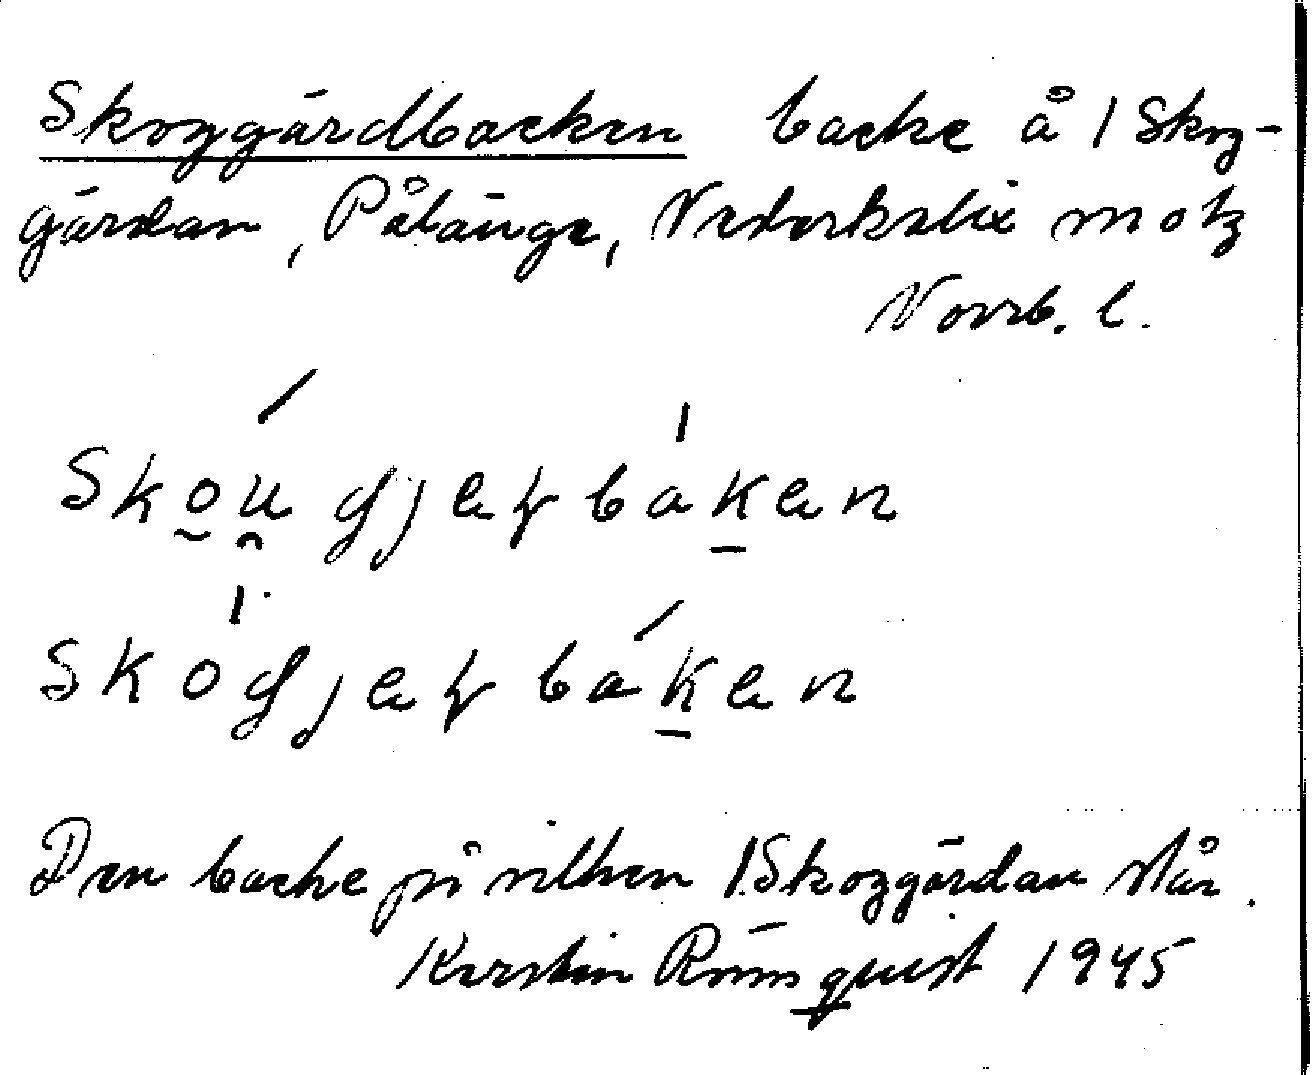 Skoggärdbacken backe å 1 Skog-
gärdan, Pålänge, Nederkalix m o tg
Norrb. l.
Skougjeɽbaken
Skogjeɽbaken
Den backe på vilken 1 Skoggärdan står.
Kerstin Rönnquist 1945